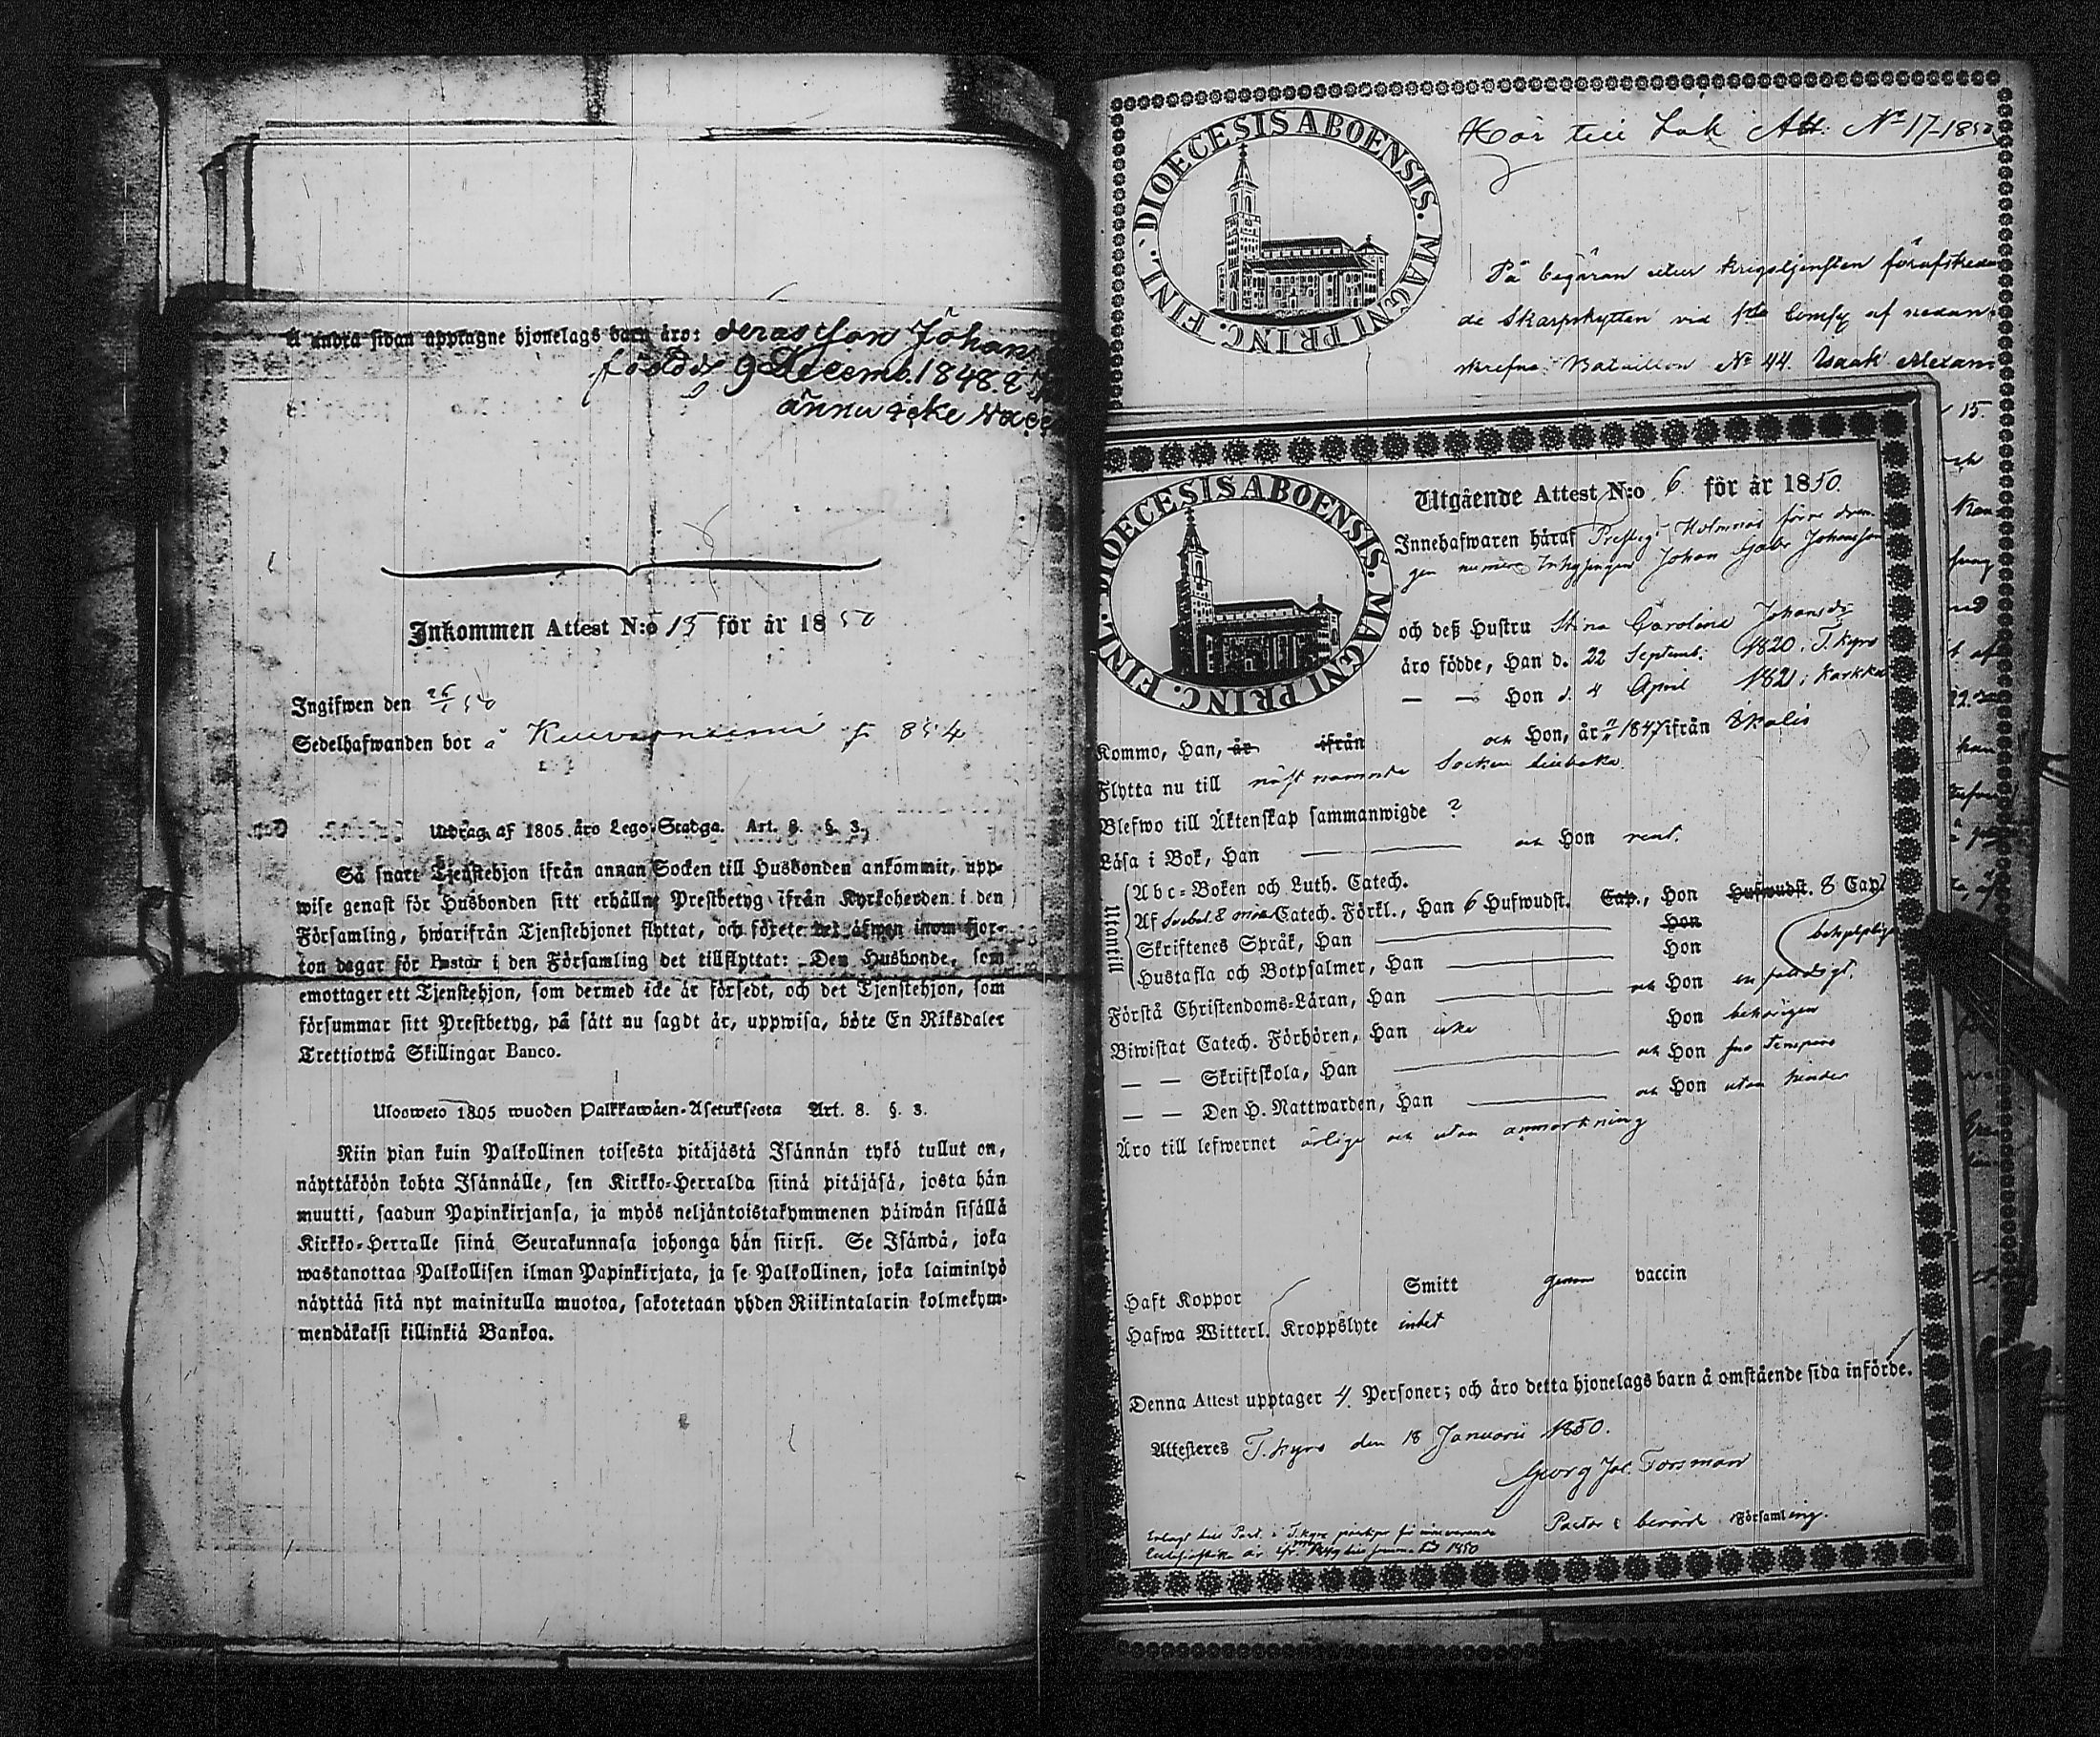 Å andra sidan upptagne hjonelags barn äro: deras Son Johan
född 9 Decemb. 1848 &
ännu icke vacc
Inkommen Attest N:o 15 för år 1850
Ingifwen den 26/1 50
Sedelhafwanden bor å
Utdrag af 1805 åro Lego-Stadga. Art. 8. §. 3.
Så snart Tjenstehjon ifrån annan Socken till Husbonden ankommit, upp-
wise genast för Husbonden sitt erhållne Prestbetyg ifrån Kyrkoherden i den
Församling, hwarifrån Tjenstehjonet flyttat, och förete det äfwen inom fjor-
ton dagar för Pastor i den Församling det tillflyttat: Den Husbonde, som
emottager ett Tjenstehjon, som dermed icke är försedt, och det Tjenstehjon, som
försummar sitt Prestbetyg, på sätt nu sagdt är, uppwisa, böte En Riksdaler
Trettiotwå Skillingar Banco.
Ulosweto 1805 wuoden Palkkawäen-Asetuksesta Art. 8. §. 3.
Niin pian kuin Palkollinen toisesta pitäjästä Isännän tykö tullut on,
näyttäköön kohta Isännälle, sen Kirkko-Herralda siinä pitäjäsä, josta hän
muutti, saadun Papinkirjansa, ja myös neljäntoistakymmenen päiwän sisällä
Kirkko-Herralle siinä Seurakunnasa johonga hän siirsi. Se Isändä, joka
wastanottaa Palkollisen ilman Papinkirjata, ja se Palkollinen, joka laiminlyö
näyttää sitä nyt mainitulla muotoa, sakotetaan yhden Riikintalarin kolmekym-
mendäkaksi killinkiä Bankoa.
DIOECESIS ABOENSIS. MAGNI PRINC. FINL.
Hör till Lak Att. No 17-1850
På begäran utur krigstjensten förafskeda
de Skarpskytten vid 1sta Comp. af nedan-
skrefne Bataillon No 44. Isaak
DIOECESIS ABOENSIS. MAGNI PRINC. FINL.
Utgående Attest N:o 6 för år 1850.
Innehafwaren häraf Holmnäs förre drän
gen numera Inhysingen Johan Gabr Johansson
och deß Hustru Stina Carolina Johansdr
äro födde, Han d. 22 Septemb. 1820. T. Kyro
— — Hon d. 4 April 1821 i Karkku
Kommo, Han, år ifrån och Hon, år 1847 ifrån Ikalis
Flytta nu till näst namnde Socken tillbaka.
Blefwo till Äktenskap sammanwigde ?
Läsa i Bok, Han — och Hon rent.
Utantill
Abc-Boken och Luth. Catech.
Af Svebel. 8 Catech. Förkl., Han 6 Hufwudst. Cap., Hon Hufwudst. 8 Cap.
Skriftenes Språk, Han — Hon
Hustafla och Botpsalmer, Han — Hon behjelplige
Förstå Christendoms-Läran, Han — och Hon enfaldigt.
Biwistat Catech. Förhören, Han icke Hon behörigen
— — Skriftskola, Han — och Hon suo tempore
— — Den H. Nattwarden, Han — och Hon utan hinder
Äro till lefwernet ärlige och utan anmärkning
Haft Koppor Smitt genom vaccin
Hafwa Witterl. Kroppslyte intet
Denna Attest upptager 4. Personer; och äro detta hjonelags barn å omstående sida införde.
Attesteres T. Kyro den 18 Januarii 1850.
Georg Jac. Forsman
Pastor i berörd Församling.